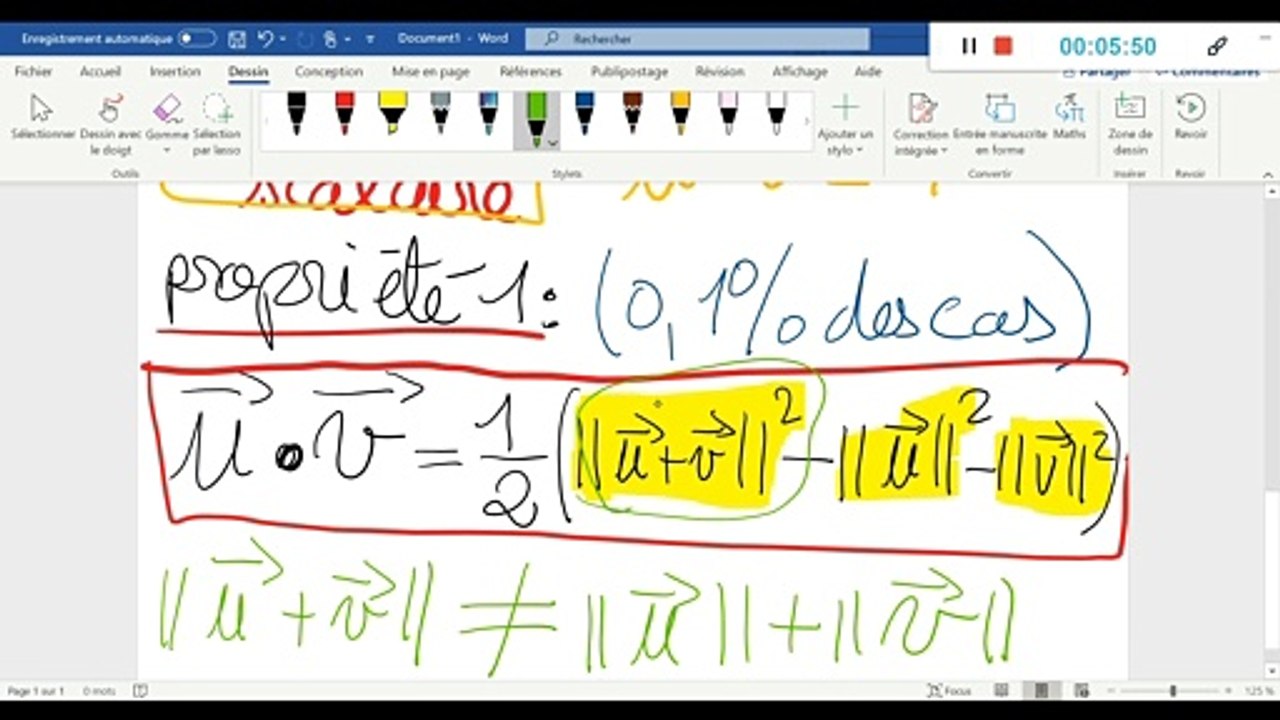 Enregistrement automatique Document1 - Word Rechercher 00:05:50
Fichier Accueil Insertion Dessin Conception Mise en page Références Publipostage Révision Affichage Aide Partager Commentaires
Sélectionner Dessin avec le doigt Gomme Sélection par lasso Ajouter un stylo Correction intégrée Entrée manuscrite en forme Maths Zone de dessin Revoir
Outils Stylets Convertir Insérer Revoir
scalaire
propriété 1: (0,1% des cas)
\vec{u} • \vec{v} = \frac{1}{2} (||\vec{u}+\vec{v}||² - ||\vec{u}||² - ||\vec{v}||²)
||\vec{u}+\vec{v}|| ≠ ||\vec{u}|| + ||\vec{v}||
Page 1 sur 1 0 mots Focus 125 %